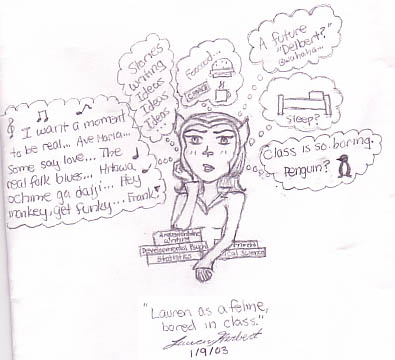 I want a moment
to be real... Ave Maria...
Some say love... The
real folk blues... Hitowa
ochime ga daiji... Hey
monkey, get funky... Frank
Stories
Writing
Ideas
Ideas
Ideas...
Foooood...
A future
"Delbert?"
Sleep?
Class is so boring.
Penguin?
Writing
Developmental Psych
Statistics
"Lauren as a feline,
bored in class."
1/9/03